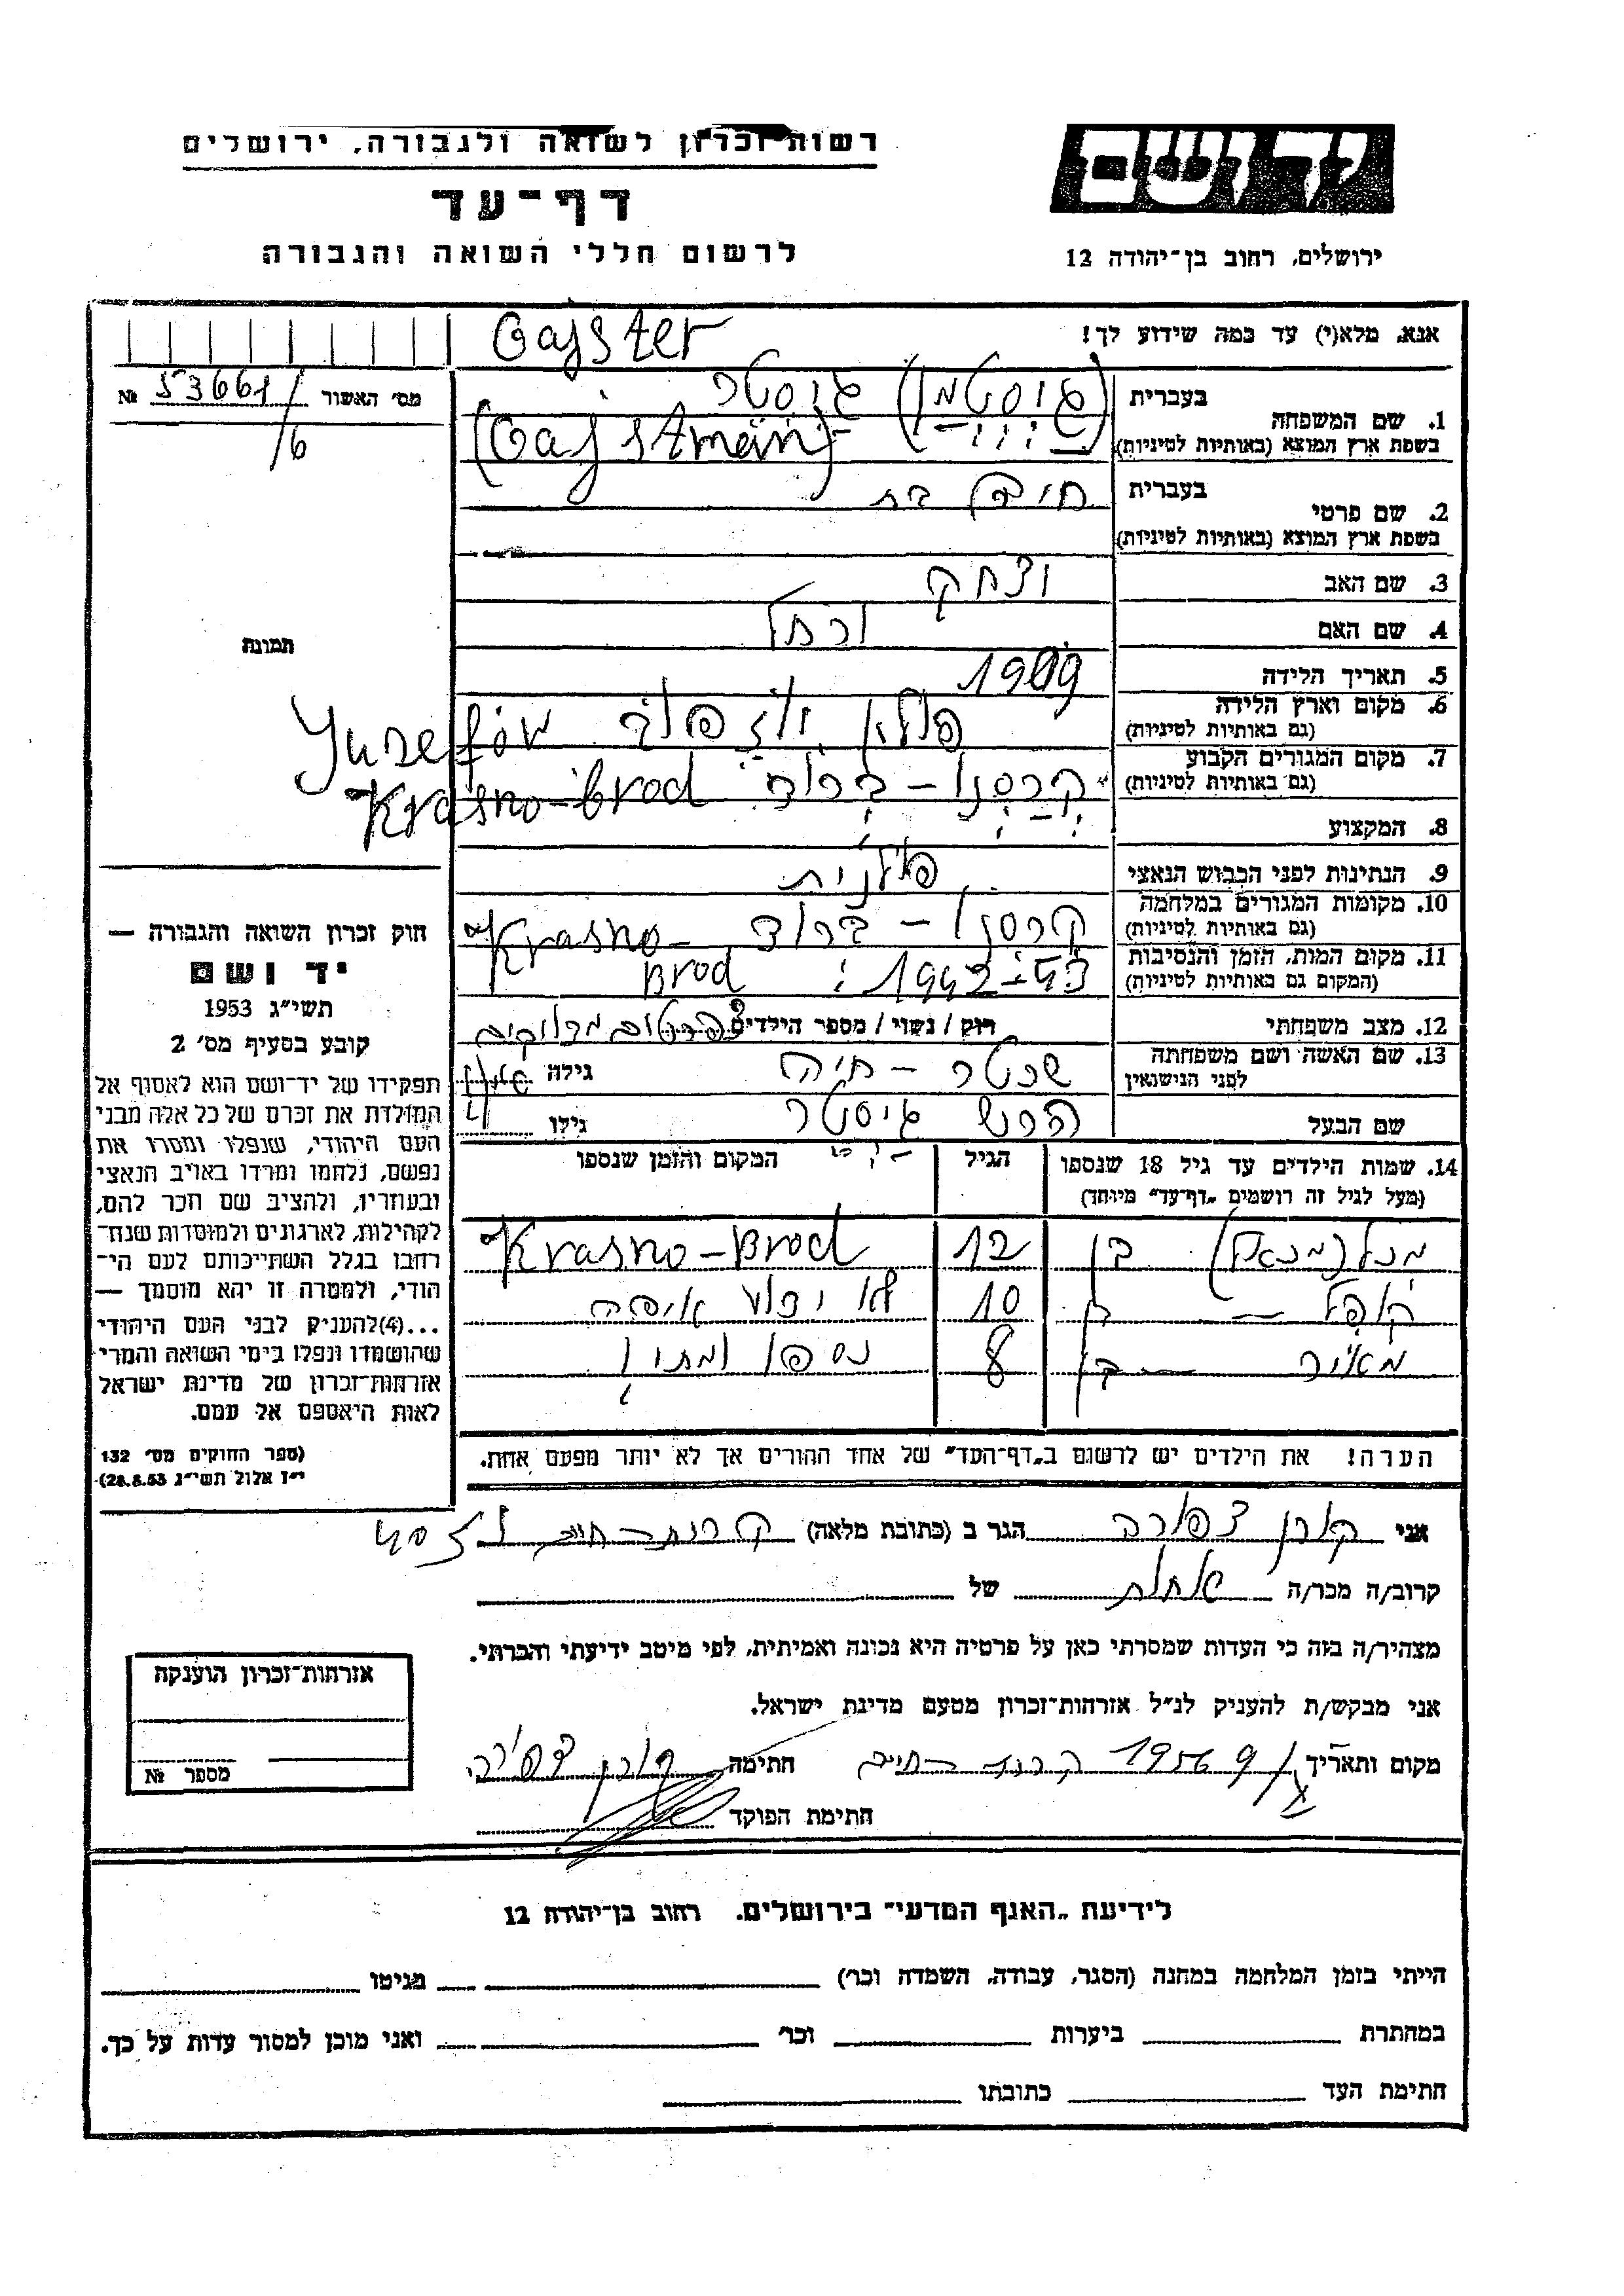 רשות זכרון לשואה ולגבורה, ירושלים
יד ושם
דף-עד
לרשום חללי השואה והגבורה
ירושלים, רחוב בן-יהודה 12
אנא, מלא(י) עד כמה שידוע לך!
Gajster
מס' האשור № 53661/6
1. שם המשפחה
בעברית (גיסטמן) גיסטר
בשפת ארץ המוצא (באותיות לטיניות) (Gajstman)
2. שם פרטי
בעברית
בשפת ארץ המוצא (באותיות לטיניות)
3. שם האב יצחק
4. שם האם
5. תאריך הלידה 1909
6. מקום וארץ הלידה
(גם באותיות לטיניות) פולין Yuzefów
7. מקום המגורים הקבוע קרסנו-ברוד Krasno-Brod
(גם באותיות לטיניות)
8. המקצוע
9. הנתינות לפני הכבוש הנאצי פולנית
10. מקומות המגורים במלחמה קרסנו-ברוד Krasno-
(גם באותיות לטיניות)
11. מקום המות, הזמן והנסיבות 1942-43 Brod
(המקום גם באותיות לטיניות)
12. מצב משפחתי רוק / נשוי / מספר הילדים
13. שם האשה ושם משפחתה שכטר - חיה גילה
לפני הנישואין
שם הבעל הרש גיסטר גילו
14. שמות הילדים עד גיל 18 שנספו הגיל המקום והזמן שנספו
(מעל לגיל זה רושמים "דף-עד" מיוחד)
בן 12 Krasno-Brod
בן 10 לא ידוע איפה
מאיר - בן 8 נספו
הערה! את הילדים יש לרשום ב"דף-העד" של אחד ההורים אך לא יותר מפעם אחת.
תמונה
חוק זכרון השואה והגבורה —
יד ושם
תשי"ג 1953
קובע בסעיף מס' 2
תפקידו של יד-ושם הוא לאסוף אל
המולדת את זכרם של כל אלה מבני
העם היהודי, שנפלו ומסרו את
נפשם, נלחמו ומרדו באויב הנאצי
ובעוזריו, ולהציב שם וזכר להם,
לקהילות, לארגונים ולמוסדות שנח-
רבו בגלל השתייכותם לעם הי-
הודי, ולמטרה זו יהא מוסמך —
...(4) להעניק לבני העם היהודי
שהושמדו ונפלו בימי השואה והמרי
אזרחות-זכרון של מדינת ישראל
לאות היאספם אל עמם.
(ספר החוקים מס' 132
י"ז אלול תשי"ג 28.8.53)
אני קורן צפורה הגר ב (כתובת מלאה) קרית-חיים
קרוב/ה מכר/ה של
מצהיר/ה בזה כי העדות שמסרתי כאן על פרטיה היא נכונה ואמיתית, לפי מיטב ידיעתי והכרתי.
אני מבקש/ת להעניק לנ"ל אזרחות-זכרון מטעם מדינת ישראל.
מקום ותאריך 1956 קרית-חיים חתימה קורן צפורה
חתימת הפוקד
אזרחות-זכרון הוענקה
מספר №
לידיעת "האגף המדעי" בירושלים. רחוב בן-יהודה 12
הייתי בזמן המלחמה במחנה (הסגר, עבודה, השמדה וכו') בגיטו
במחתרת ביערות וכו' ואני מוכן למסור עדות על כך.
חתימת העד כתובתו